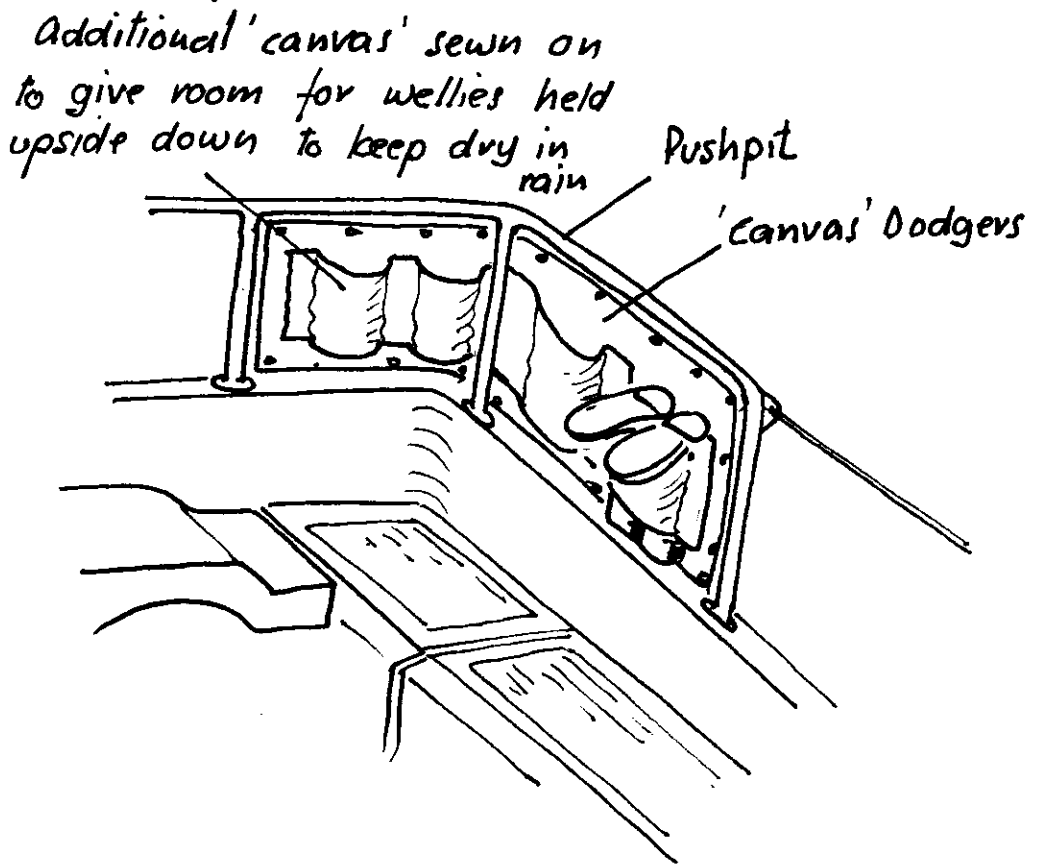 Additional 'canvas' sewn on
to give room for wellies held
upside down to keep dry in
rain
Pushpit
'Canvas' Dodgers